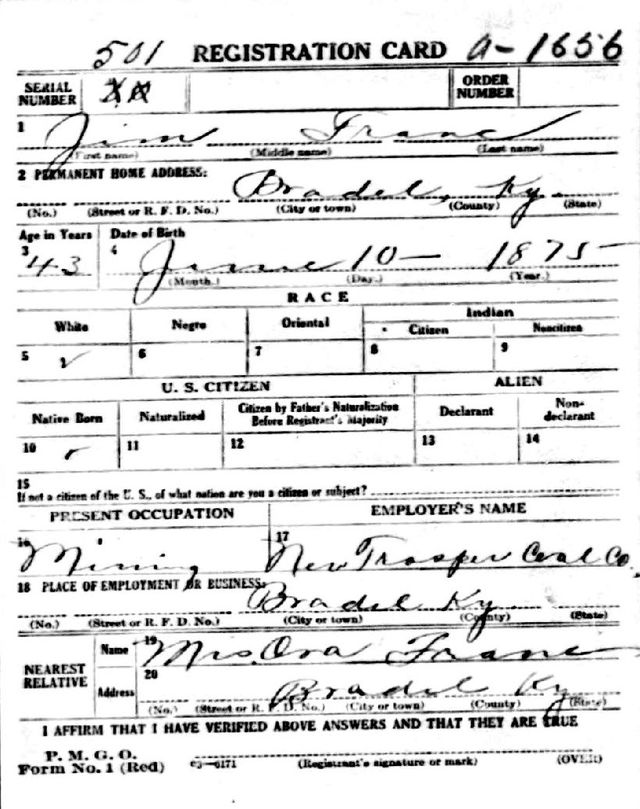 501 REGISTRATION CARD A-1656
SERIAL NUMBER ORDER NUMBER
1 Jim Franc
(First name) (Middle name) (Last name)
2 PERMANENT HOME ADDRESS:
Bradel, Ky.
(No.) (Street or R. F. D. No.) (City or town) (County) (State)
Age in Years Date of Birth
3 43 4 June 10 - 1875
(Month.) (Day.) (Year.)
RACE
White Negro Oriental Indian
Citizen Noncitizen
5 6 7 8 9
U. S. CITIZEN ALIEN
Native Born Naturalized Citizen by Father's Naturalization Before Registrant's Majority Declarant Non-declarant
10 11 12 13 14
15
If not a citizen of the U. S., of what nation are you a citizen or subject?
PRESENT OCCUPATION EMPLOYER'S NAME
16 Mining 17 New Trosper Coal Co.
18 PLACE OF EMPLOYMENT OR BUSINESS:
Bradel Ky
(No.) (Street or R. F. D. No.) (City or town) (County) (State)
NEAREST RELATIVE Name 19 Mrs. Ora Franc
Address 20 Bradel Ky
(No.) (Street or R. F. D. No.) (City or town) (County) (State)
I AFFIRM THAT I HAVE VERIFIED ABOVE ANSWERS AND THAT THEY ARE TRUE
P. M. G. O.
Form No. 1 (Red) 03—6171 (Registrant's signature or mark) (OVER)